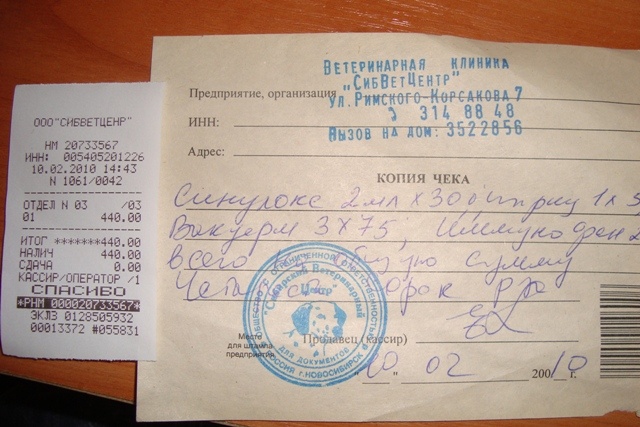 ООО"СИБВЕТЦЕНР"
НМ 20733567
ИНН: 005405201226
10.02.2010 14:43
N 1061/0042
ОТДЕЛ N 03 /03
01 440.00
ИТОГ *******440.00
НАЛИЧ 440.00
СДАЧА 0.00
КАССИР/ОПЕРАТОР /1
СПАСИБО
*РНМ 000020733567*
ЭКЛЗ 0128505932
00013372 #055831
ВЕТЕРИНАРНАЯ КЛИНИКА
"СИБВЕТЦЕНТР"
Предприятие, организация УЛ.РИМСКОГО-КОРСАКОВА 7
314 88 48
ИНН:
ВЫЗОВ НА ДОМ: 3522856
Адрес:
КОПИЯ ЧЕКА
Синулокс 2мл х 30 1 х
Вакдерм 3х75; Иммунофан
всего на общую сумму
Четыреста сорок р
ОБЩЕСТВО С ОГРАНИЧЕННОЙ ОТВЕТСТВЕННОСТЬЮ
"Сибирский Ветеринарный
Центр"
ДЛЯ ДОКУМЕНТОВ
РОССИЯ г.НОВОСИБИРСК
Место
для штампа
предприятия
Продавец (кассир)
"10" 02 2010 г.